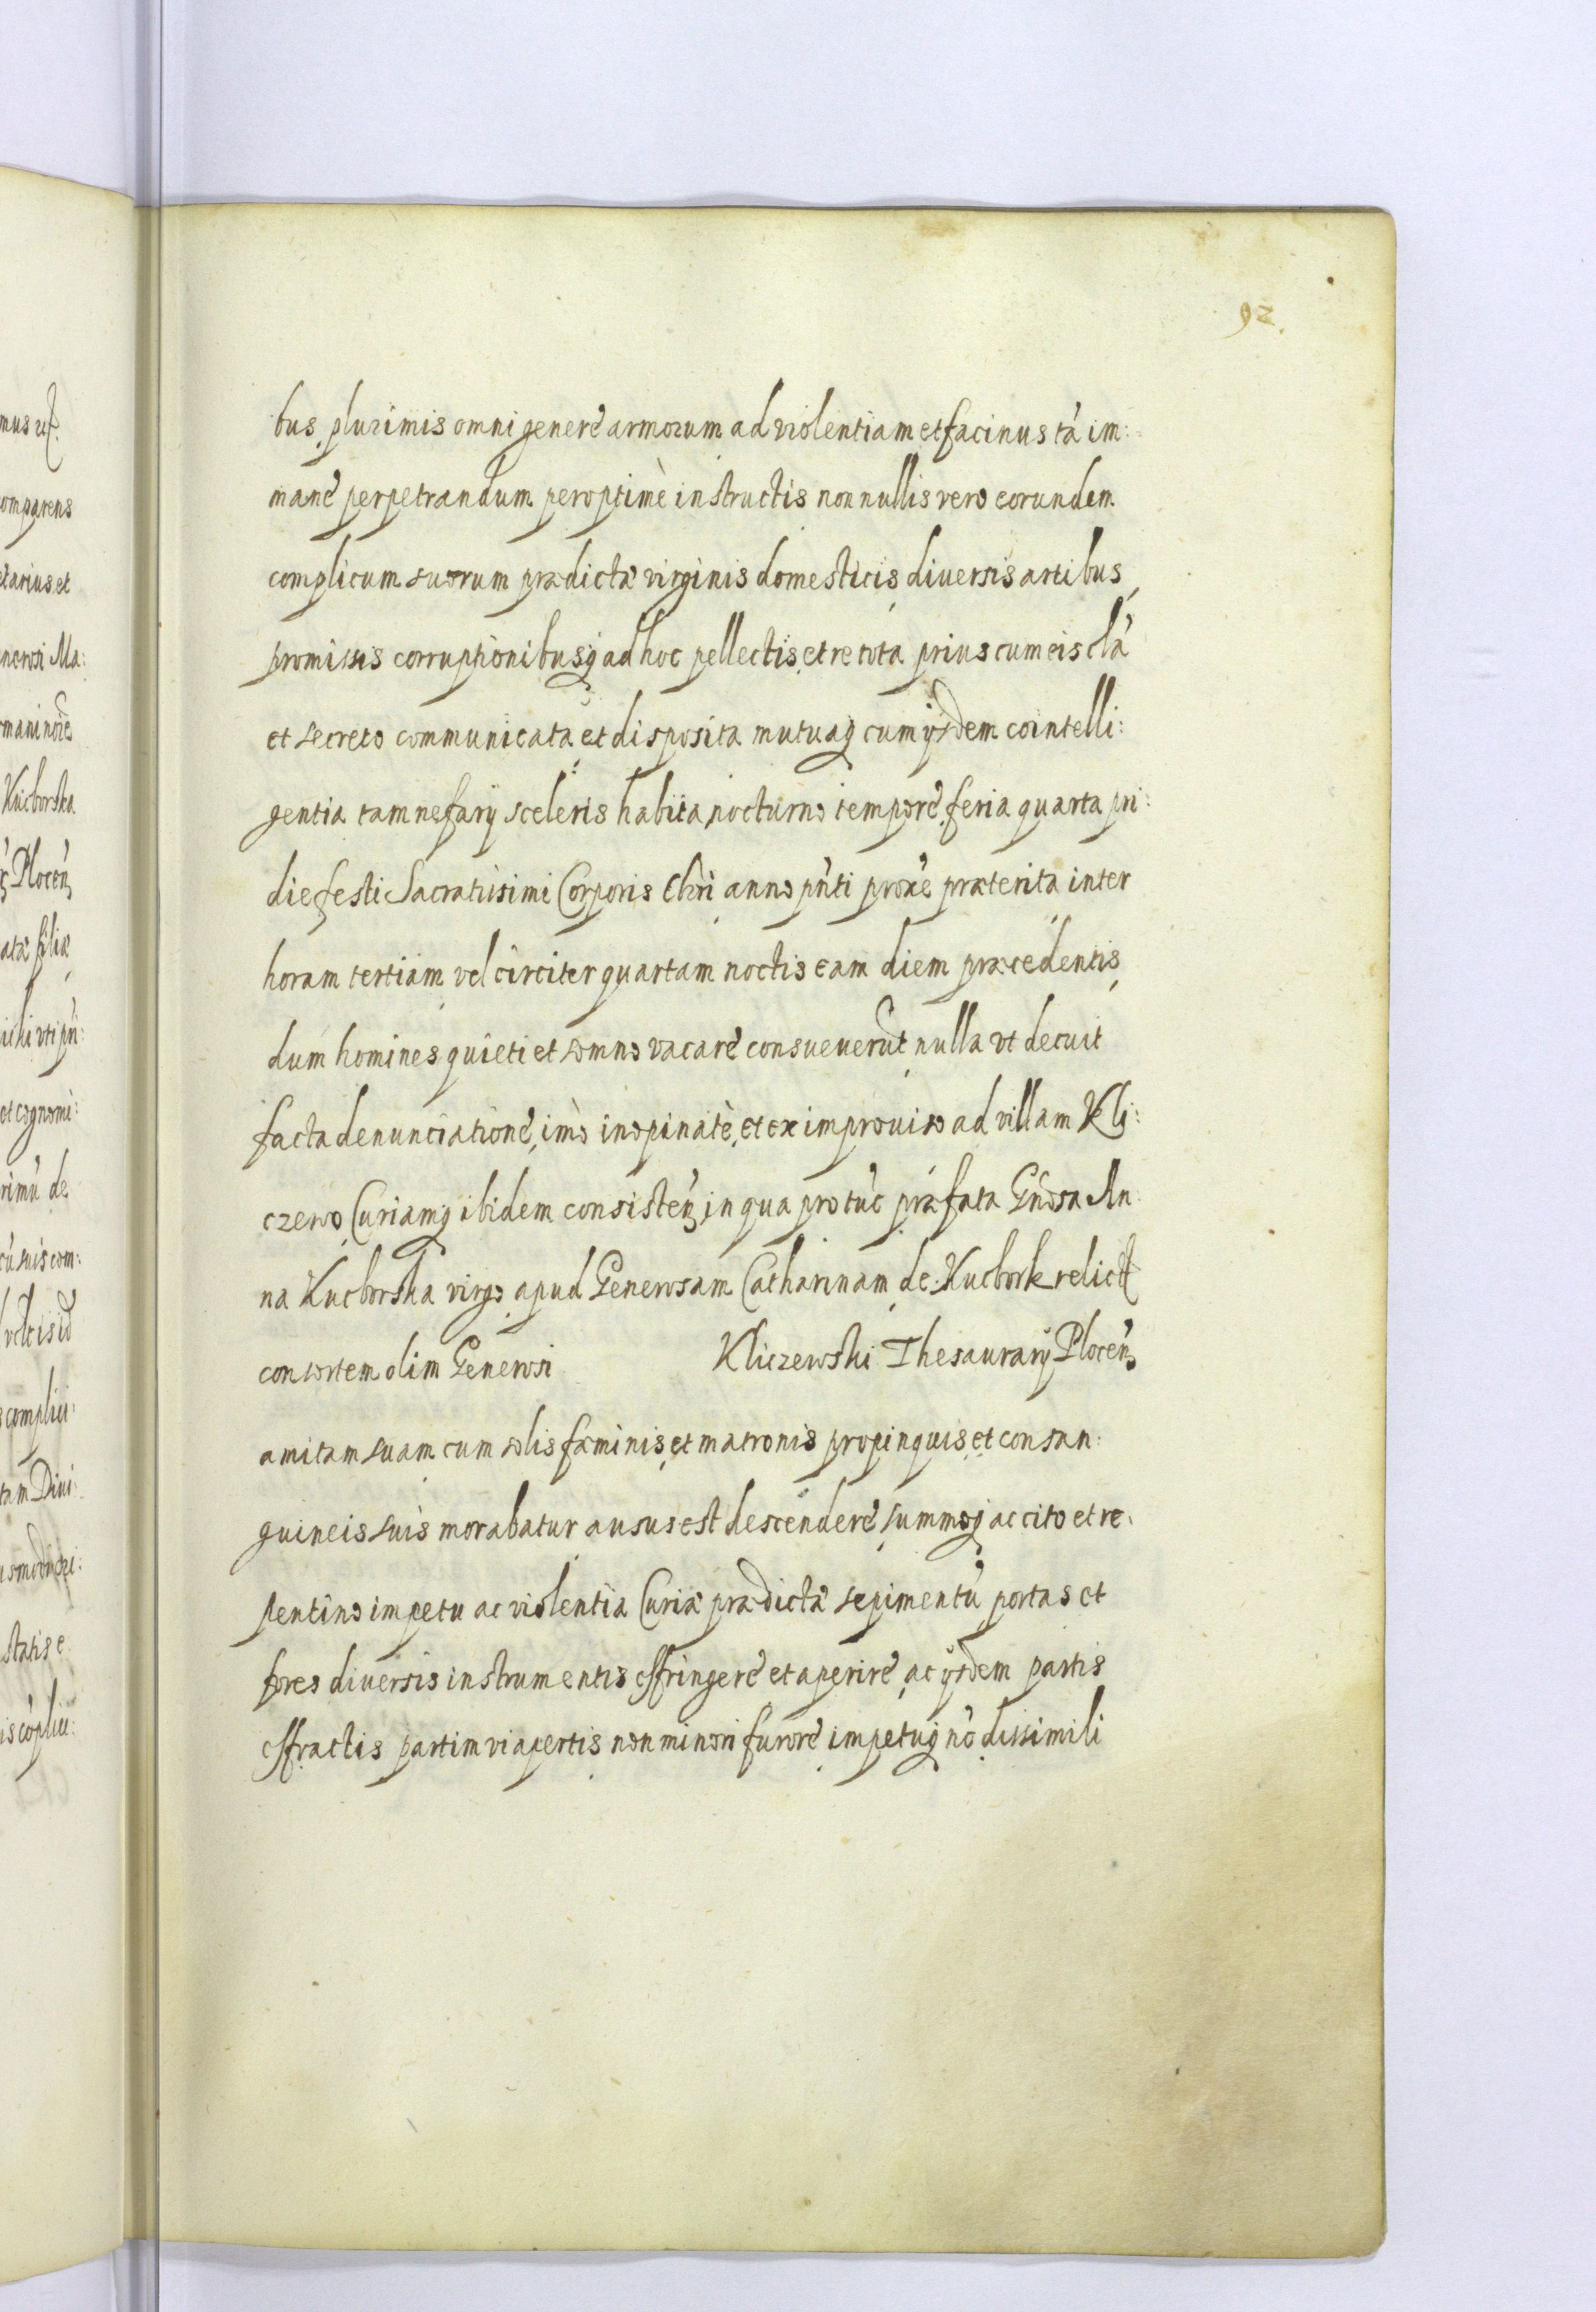 92.
bus plurimis omni generè armorum ad violentiam et facinus tā im:
manè perpetrandum peroptimè instructis non nullis vero eorundem
complicum suorum prædictæ virginis domesticis diversis artibus,
promissis corruptionibusq̃ ad hoc pellectis, et re tota prius cum eis clā
et secreto communicata, et disposita mutuaq̃ cum ijsdem cointelli:
gentia tam nefarij sceleris habita, nocturno temporè, feria quarta pri:
die festi Sacratissimi Corporis Chri anno pñti proxè præterita inter
horam tertiam vel circiter quartam noctis eam diem præcedentis,
dum homines quieti et somno vacarè consueuerūt, nulla vt decuit
facta denunciationè, imò inopinatè, et ex improuiso ad villam Kli:
czewo, Curiamq̃ ibidem consisteñ, in qua pro tūc præfata Gñosa An:
na Kucborska virgo apud Generosam Catharinam de Kucbork relictã
consortem olim Generosi Kliczewski Thesaurarij Plocen̄
amitam suam cum solis fæminis, et matronis propinquis, et consan:
guineis suis morabatur ausus est descenderè, summoq̃ ac cito et re:
pentino impetu ac violentia Curiæ prædictæ sepimentū portas et
fores diversis instrumentis effringerè et aperirè, ac ijsdem partis
effractis partim vi apertis non minori furorè impetuq̃ nō dissimili
mus
omparens
etarius et
nerosi Ma:
mani noīe
Kucborska
Plocen̄
atæ filiæ
et cognomi:
rimū de
cū suis com:
tam Divi:
statis e: